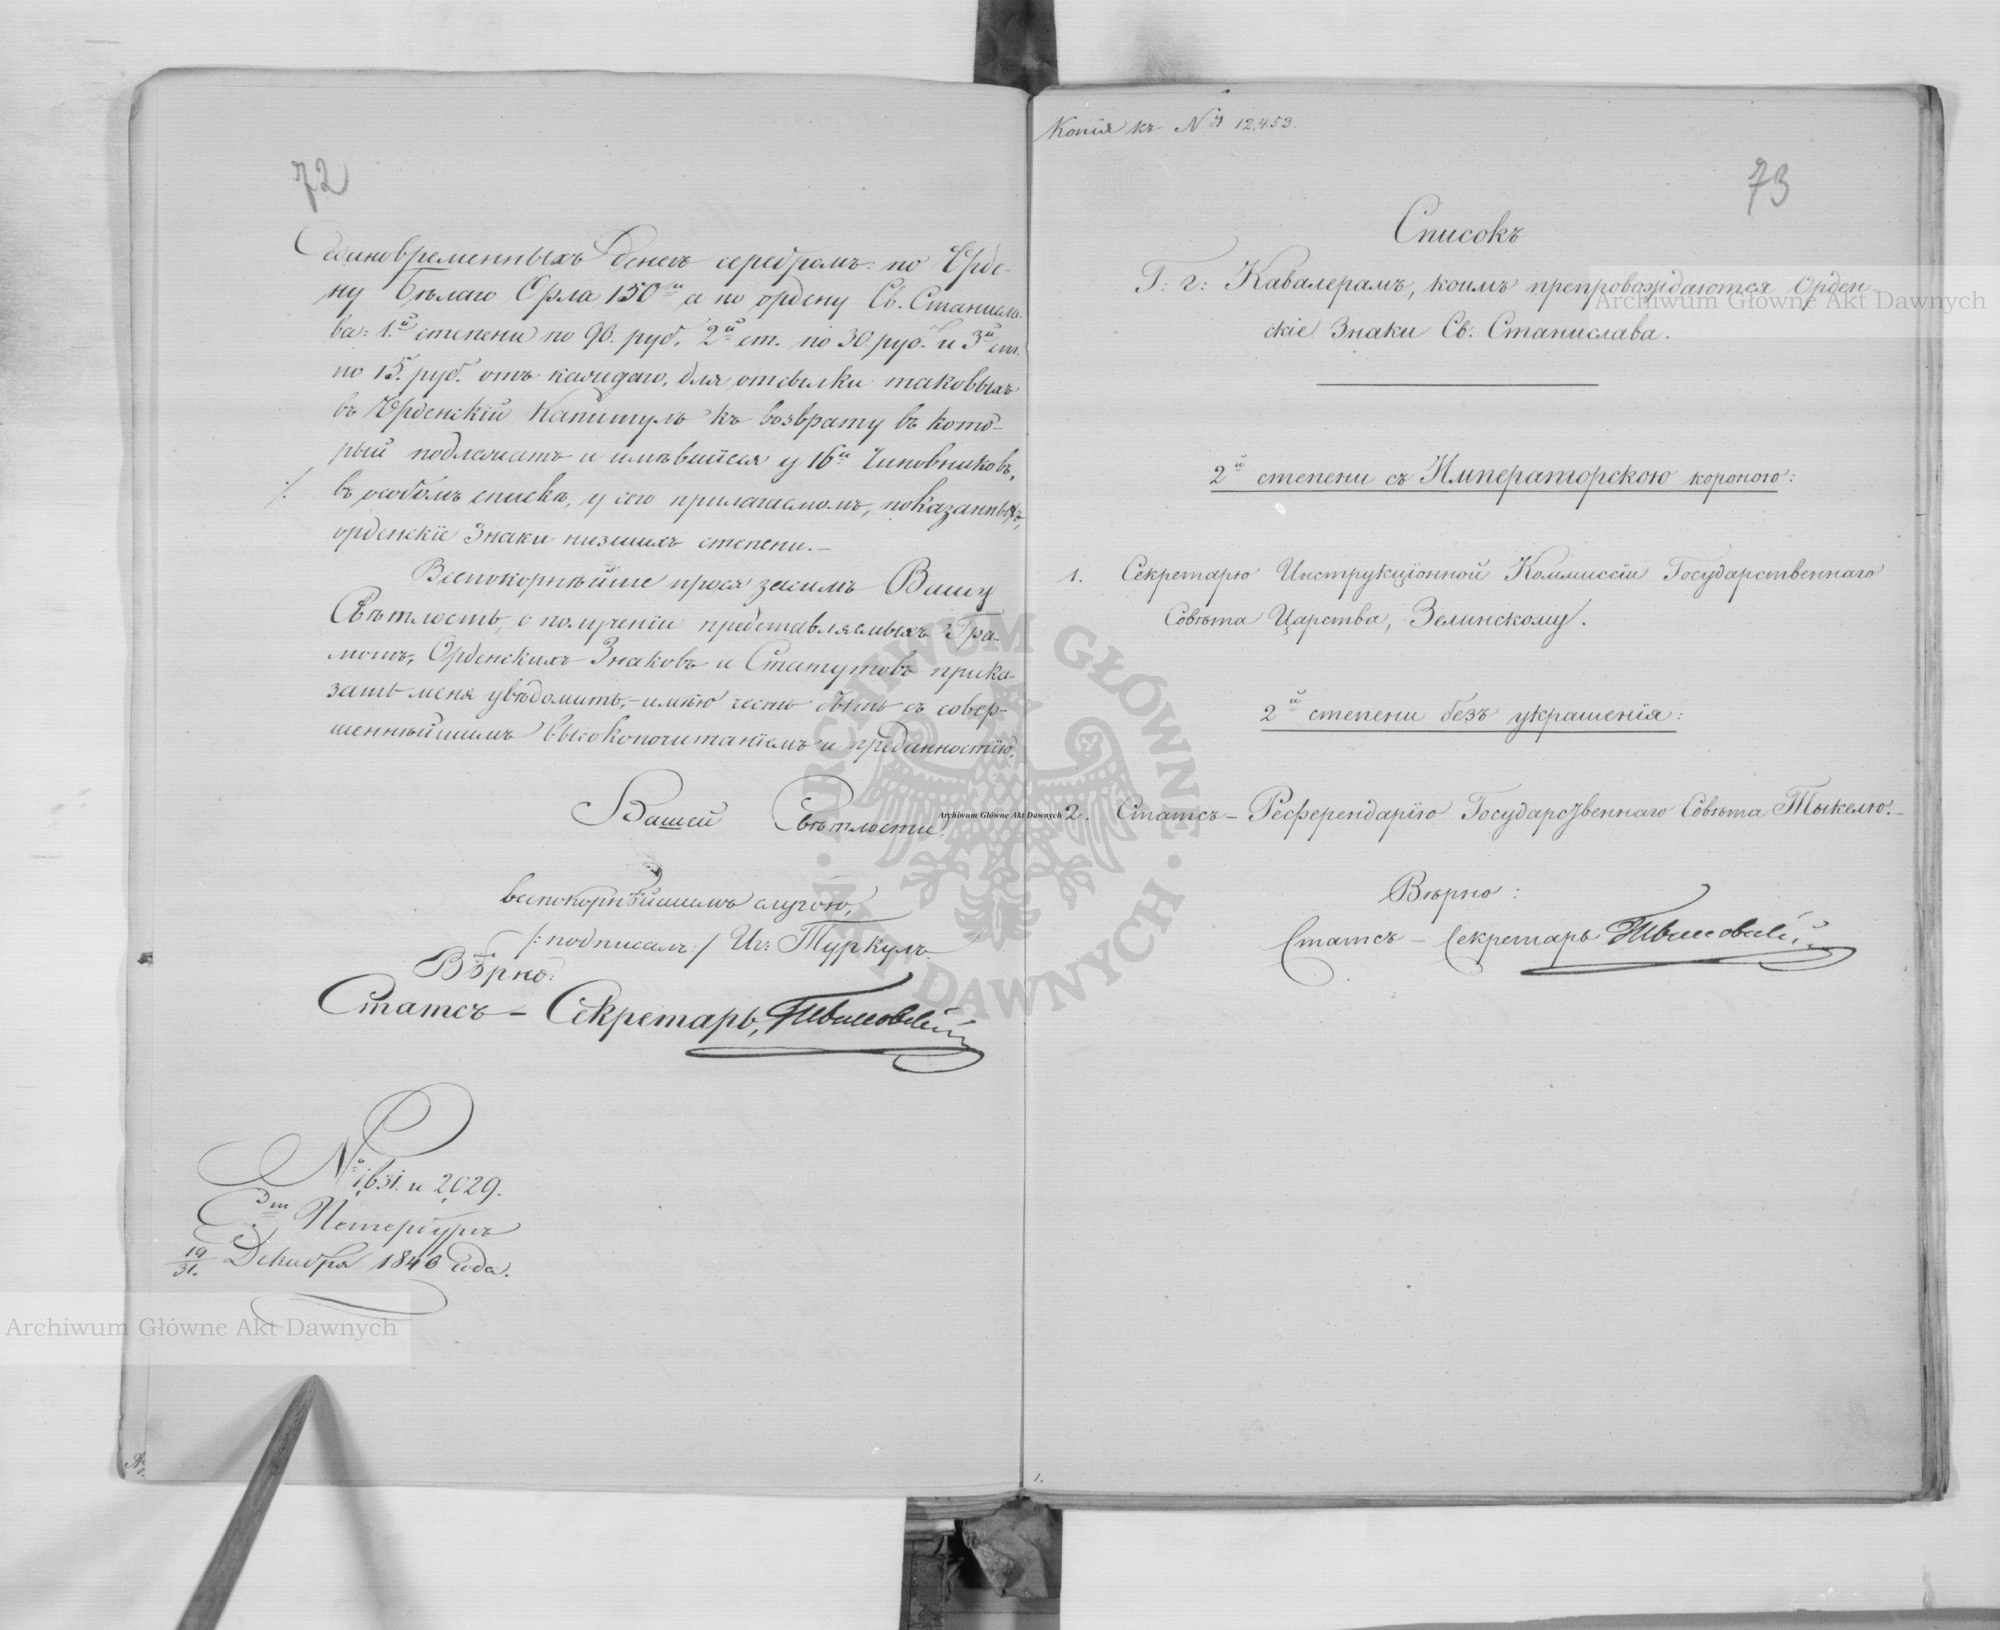 72
Единовременныхъ денегъ серебромъ: по Орде-
ну Бѣлаго Орла 150 и а по ордену Св. Станисла-
ва: 1.й степени по 90. руб. 2й ст. по 30. руб. и 3й ст.
по 15. руб. отъ каждаго, для отсылки таковыхъ
въ Орденскій Капитулъ къ возврату въ кото-
рый подлежатъ и имѣвшіяся у 16и Чиновниковъ,
въ особомъ спискѣ, у сего прилагаемомъ, показанныхъ,
орденскіе Знаки низшихъ степени. —
Всепокорнѣйше прося засимъ Вашу
Свѣтлость, о полученіи представляемыхъ Гра-
мотъ, Орденскихъ Знаковъ и Статутовъ прика-
зать меня увѣдомить, — имѣю честь быть съ совер-
шеннѣйшимъ высокопочитаніемъ и преданностію,
Вашей Свѣтлости
всепокорнѣйшимъ слугою,
/: подписалъ: / Иг: Туркулъ.
Вѣрно:
Статсъ — Секретарь,
№ 1,631. и 2,029.
С. Петербургъ
19/31. Декабря 1840 года.
Копія къ № 12,453.
73
Списокъ
Г: г: Кавалерамъ, коимъ препровождаются Орден
скіе Знаки Св. Станислава.
2й степени съ Императорскою короною:
1. Секретарю Инструкціонной Коммиссіи Государственнаго
Совѣта Царства, Зелинскому.
2й степени безъ украшенія:
2. Статсъ — Референдарію Государственнаго Совѣта Тыкелю. —
Вѣрно:
Статсъ — Секретарь
1.
Archiwum Główne Akt Dawnych
Archiwum Główne Akt Dawnych
Archiwum Główne Akt Dawnych
ARCHIWUM GŁÓWNE · AKT DAWNYCH ·